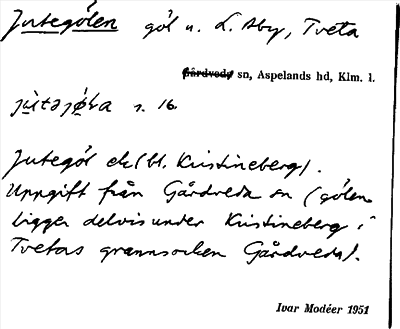 Jutegölen göl u. L. Åby, Tveta
Gårdveds sn, Aspelands hd, Klm. l.
s. 16.
Jutegöl ek (bl. Kristineberg).
Uppgift från Gårdveda sn (gölen
ligger delvis under Kristineberg i
Tvetas grannsocken Gårdveda).
Ivar Modéer 1951